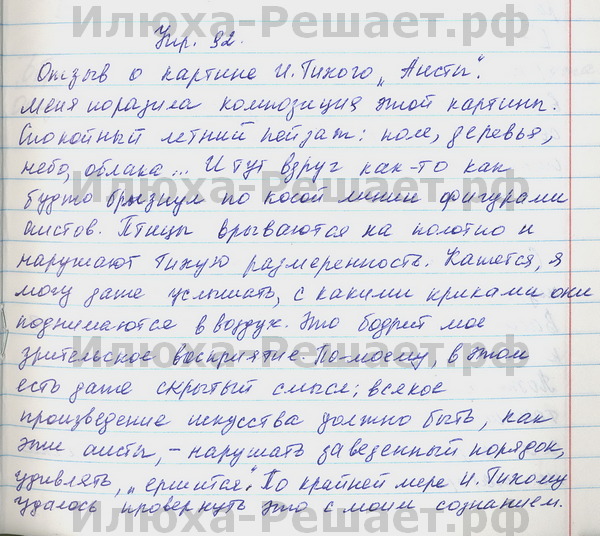 Илюха-Решает.рф
Упр. 92.
Отзыв о картине И. Тихого „Аисты".
Меня поразила композиция этой картины.
Спокойный летний пейзаж: поле, деревья,
небо, облака... И тут вдруг как-то как
Илюха-Решает.рф
будто брызнул по косой линии фигурами
аистов. Птицы врываются на полотно и
нарушают тихую размеренность. Кажется, я
могу даже услышать, с какими криками они
поднимаются в воздух. Это бодрит мое
Илюха-Решает.рф
зрительское восприятие. По-моему, в этом
есть даже скрытый смысл; всякое
произведение искусства должно быть, как
эти аисты, – нарушать заведенный порядок,
удивлять, „ершится". По крайней мере И. Тихому
удалось провернуть это с моим сознанием.
Илюха-Решает.рф